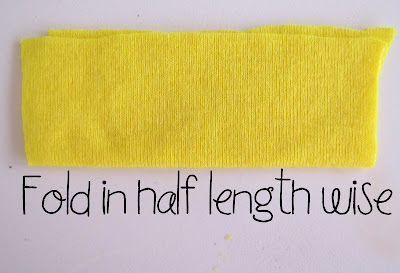 Fold in half length wise